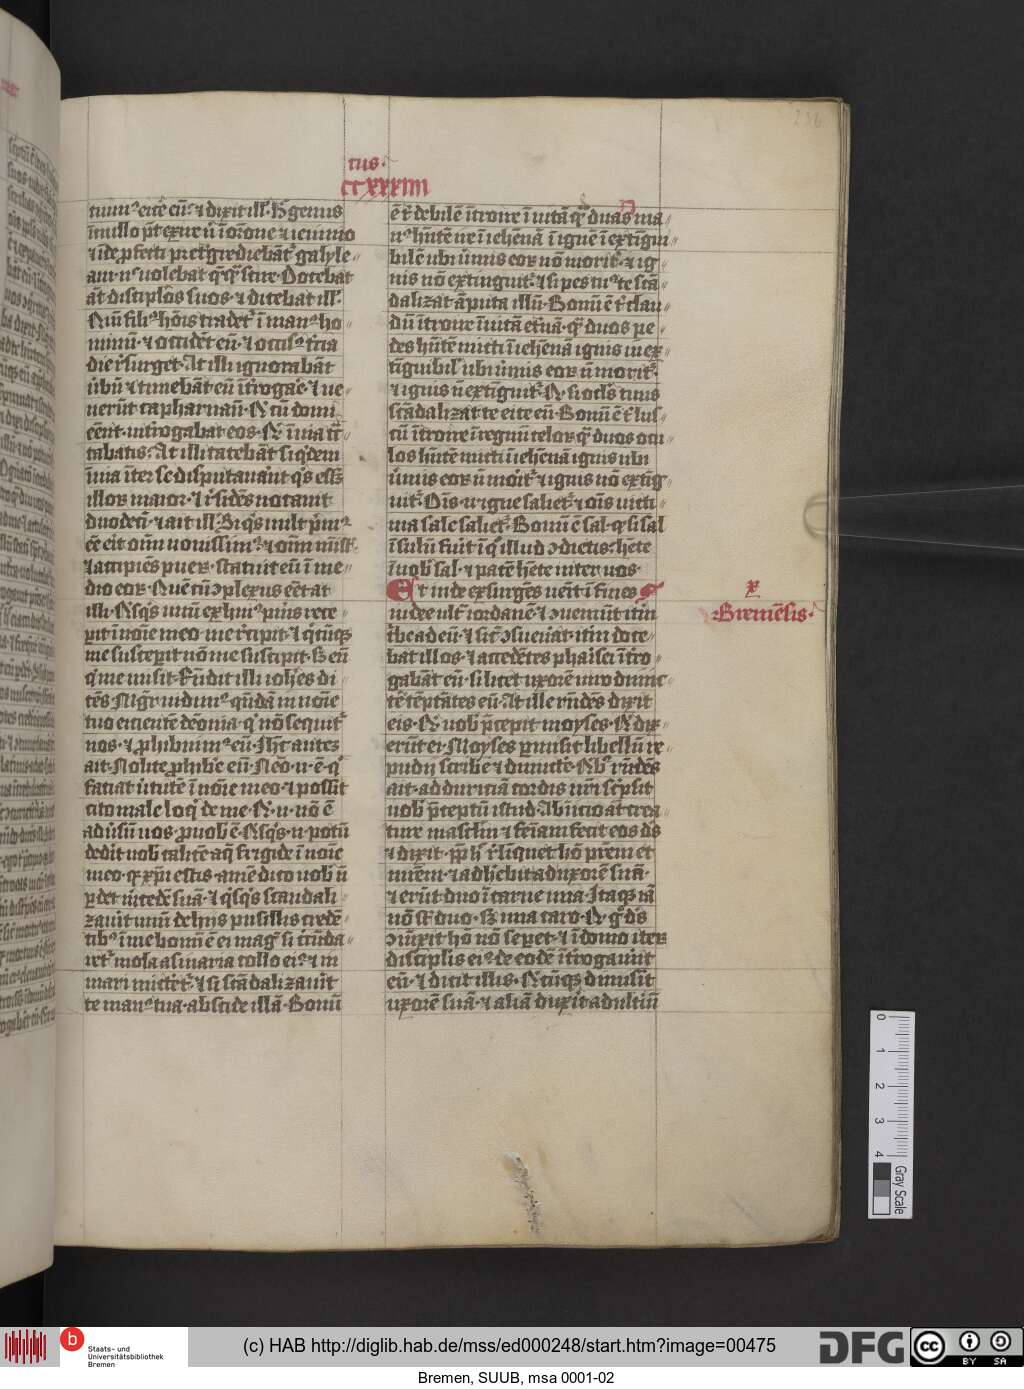 tus·
ccxxxiiii
tuim⁹ eicē eū·⁊ dixit ill̓· H̓ genus
ī nullo pt̄ exire n̄ ī orone ⁊ ieiunio
⁊ īde p̄fecti p̄tergrediebāt᷑ galyle
am· n̓ uolebat q̄q̄ scire· Docebat
āt discip̄los suos·⁊ dicebat ill̓·
Qm̄ fili⁹ hōis tradet᷑ ī man⁹ ho
minū·⁊ occidēt eū·⁊ occis⁹ t̄cia
die r̓surget· At illi ignorabāt
ūbū ⁊ timebāt eū īt̄rogaē· ⁊ ue
nerūt capharnaū· Q̇ cū domi
eēnt· int̓rogabat eos· Q̇ ī uia t̄c̄
tabatis· At illi tacebāt siq̇dem
ī uia īter se disputauāūt q̇s ess̄
illoꝝ maior·⁊ r̓sidēs uocauit
duodeciē·⁊ ait ill̓· Si q̇s uult p̓m⁹
eē· eit oīm nouissim⁹ ⁊ oīm mīst̄·
⁊ accipiēs pueꝝ· statuit eū ī me
dio eoꝝ· Quē cū ɔplexus eēt· at
illi· Q̇sq̇s unū ex hui⁹ p̄uis rece
ꝑit ī noīe meo· me r̓cipit·⁊ q̇cūqꝫ
me susceꝑit nō me suscipit· sꝫ eū
q̇ me misit· R̄ndit illi ioh̄es di
cēs· Mḡr uidim⁹ q̄ndā in noīe
tuo eicientē dēonia· q̇ nō seqit᷑
nos·⁊ ꝓhibuim⁹ eū· Ih̄c autes
ait· Nolite ꝓhib̄e eū· Nēo· n̓· ē· q̇
faciat ūtutē ī noīe meo·⁊ possit
cito male loq̇ de me· Q̇· n̓· nō ē
adūsū uos· ꝓ uob̓ ē· Q̇sq̇s· n̓· potū
dedit uob̓ calicē aq̄ frigide ī noīe
meo· q̇ xp̄i estis· amē dico uob̓ n̄
ꝑdet m̓cedē suā·⁊ q̇sq̇s scandali
zauit unū de hiis pusillis credē
tib⁹ ī me bonū ē ei mag̓ si cīc̄da
ret᷑ mola asinaria collo ei⁹ ⁊ in
mari mictet᷑·⁊ si scādalizauīt
te man⁹ tua· abscide illā· Bonū
ē t̄ debilē īt̓roire ī uitā q̄ duas ma
n⁹ hn̄tē ire ī iehenā ī ignē īextīgui
bilē ubi ūmis eoꝝ nō morit᷑·⁊ ig
nis nō extinguit᷑·⁊ si pes tu⁹ te scā
dalizat āputa illū· Bonū ē t̄ clau
dū īt̓roire ī uitā etnā· q̄ duos pe
des hn̄tē micti ī iehenā ignis inex
tīguibil̓· ubi ūmis eoꝝ n̄ morit᷑·
⁊ ignis n̄ extīguit᷑· Q̇ si ocl̓s tuus
scādalizat te eice eū· Bonū ē t̄ lus
cū īt̓roire ī regnū celoꝝ q̄ duos ocu
los hn̄tē micti ī iehenā ignis ubi
ūmis eoꝝ n̄ moīt᷑·⁊ ignis nō extīg
uit᷑· Oīs· n̓ igne saliet᷑·⁊ oīs uicti
ma sale saliet᷑· Bonū ē sal· q̇ si sal
īsulsū fuit ī q̇ illud ɔdietis· hēte
ī uob̓ sal·⁊ pacē hēte inter uos·
Et inde exsurgēs uēit ī fines
iudee ult̄ iordanē·⁊ ɔueniūt it̓m
t̓be ad eū·⁊ sic̄ ɔsueūat· it̓m doce
bat illos·⁊ accedētes phaīsei īt̓ro
gabāt eū· si licet uxorē uiro dimic
tē tēptātes eū· At ille rn̄dēs dixit
eis· Q̇ uob̓ p̄cepit moyses· Q̇ dix
erūt ei· Moyses ꝑmisit libellū re
pudij scribē·⁊ dimictē· Qb̓ rn̄dēs
ait· ad duriciā cordis ur̄i sc̓psit
uob̓ p̄ceptū istud· Ab īicio āt crea
ture masclm̄ ⁊ femīam fecit eos dꝰs
⁊ dixit· ꝓp̄ h̓ r̓linquet hō p̄rem et
mr̄em·⁊ adh̄ebit ad uxorē suā·
⁊ erūt duo ī carne una· Itaqꝫ iā
nō st̄ duo· sꝫ una caro· Q̇ q̇ dꝰs
ɔiūxit hō nō sepet·⁊ ī domo iteꝝ
discip̄lis ei⁹ de eodē īt̓rogauīt
eū·⁊ dicit illis· Q̇cūqꝫ dimisīt
uxorē suā·⁊ aliā duxīt adultiū
x
Bremēsis·
0
1
2
3
4
Gray Scale
b Staats- und
Universitätsbibliothek
Bremen
(c) HAB http://diglib.hab.de/mss/ed000248/start.htm?image=00475
DFG
cc
BY SA
Bremen, SUUB, msa 0001-02